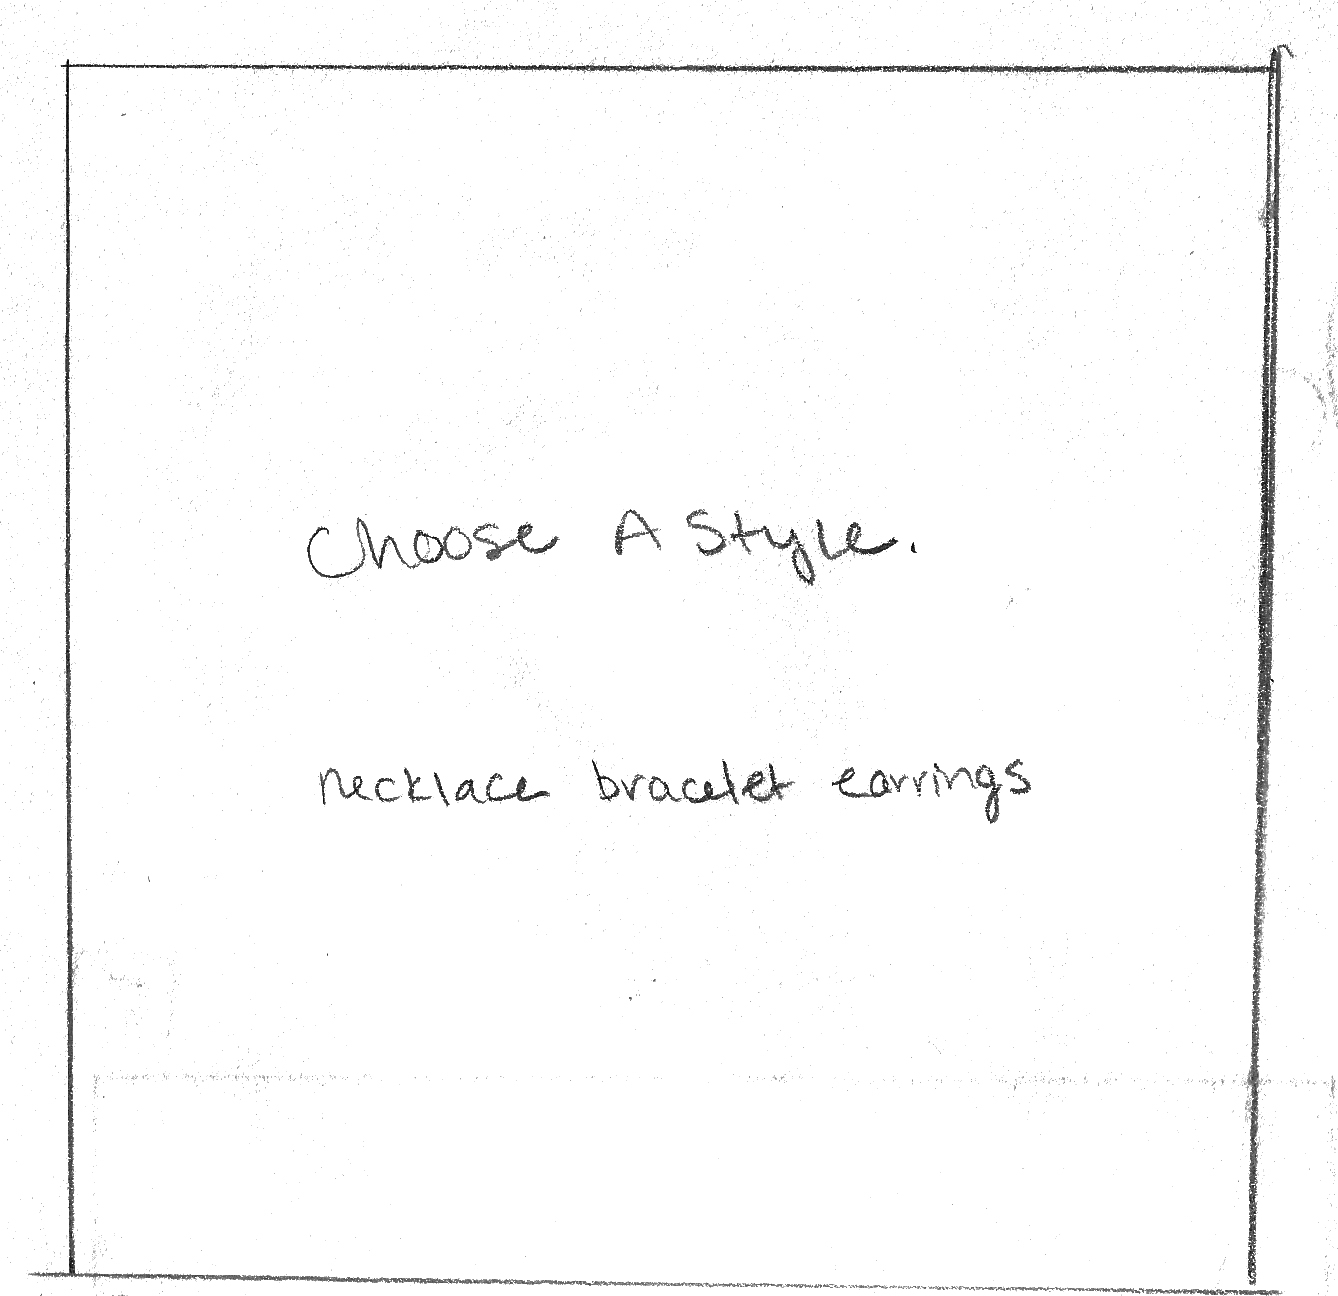 Choose A Style.
necklace bracelet earrings